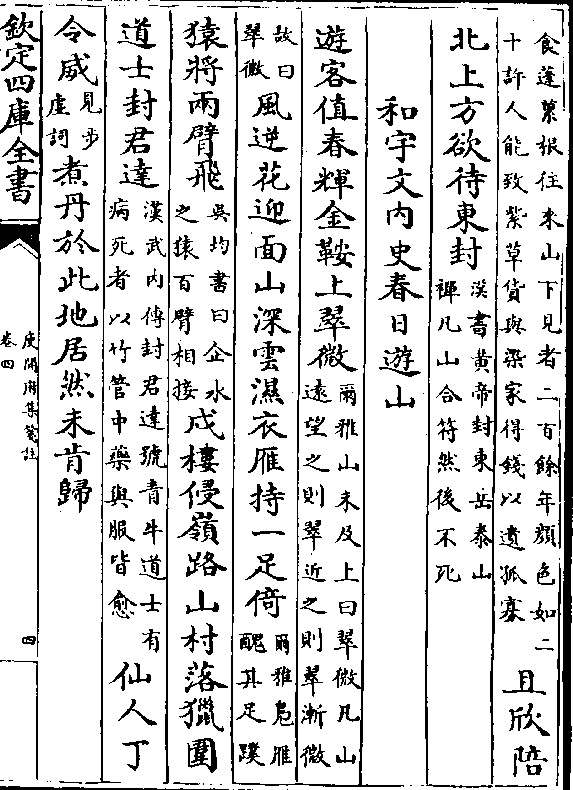 食蓬蔂根往來山下見者二百餘年顔色如二
十許人能致紫草貨與染家得錢以遺孤寡
且欣陪
北上方欲待東封
漢書黄帝封東岳泰山
禪凡山合符然後不死
和宇文内史春日遊山
遊客值春輝金鞍上翠微
爾雅山未及上曰翠微凡山
遠望之則翠近之則翠漸微
故曰
翠微
風逆花迎面山深雲濕衣雁持一足倚
爾雅鳬雁
醜其足蹼
猿將兩臂飛
吳均書曰企水
之猿百臂相接
戍樓侵嶺路山村落獵圍
道士封君達
漢武内傳封君達號青牛道士有
病死者以竹管中藥與服皆愈
仙人丁
令威
見步
虚詞
煮丹於此地居然未肯歸
欽定四庫全書
庾開府集箋註
卷四
四